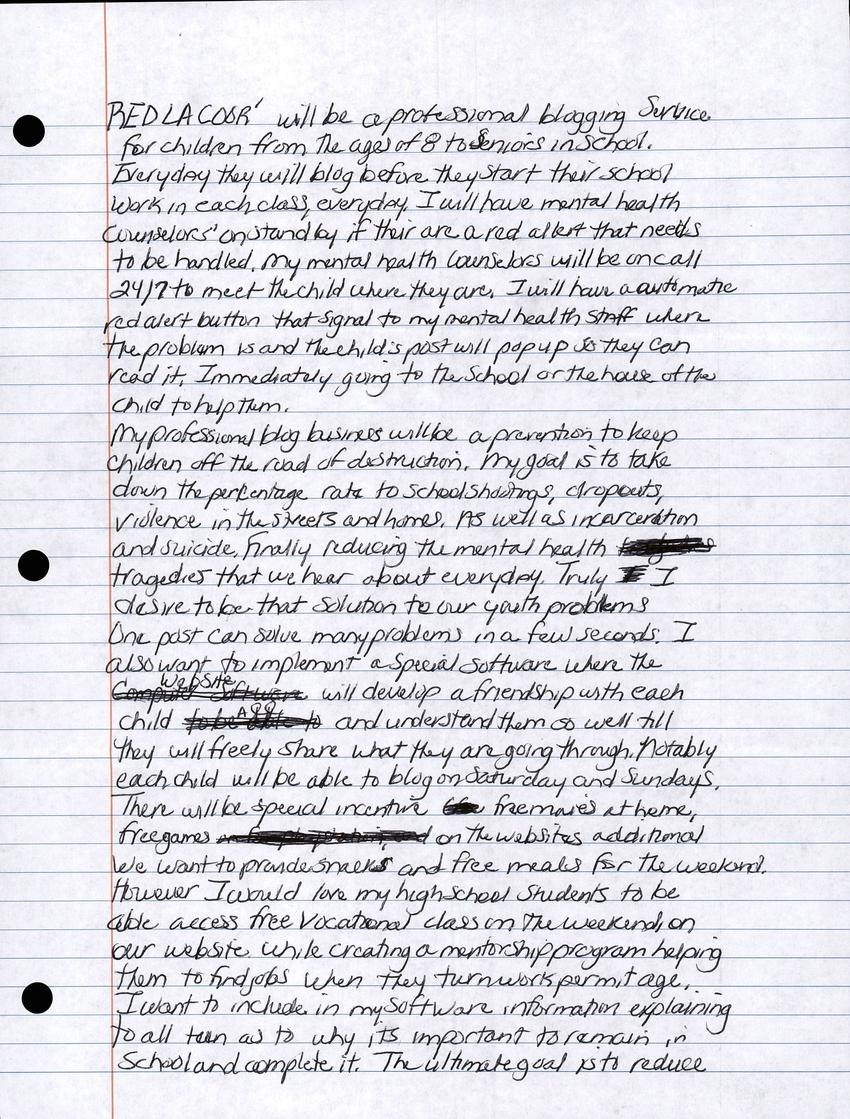 REDLACOOR' will be a professional blogging Service
for children from the ages of 8 to Seniors in school.
Everyday they will blog before they start their school
work in each class, everyday. I will have mental health
Counselors' on standby if their are a red allert that needs
to be handled. My mental health Counselors will be on call
24/7 to meet the child where they are. I will have a automatic
red alert button that signal to my mental health staff where
the problem is and the child's post will pop up so they can
read it. Immediately going to the School or the house of the
child to help them.
My professional blog business will be a prevention to keep
children off the road of destruction. My goal is to take
down the percentage rate to school shootings, dropouts,
violence in the streets and homes. As well as incarceration
and suicide. Finally reducing the mental health
tragedies that we hear about everyday. Truly I
desire to be that solution to our youth problems
One post can solve many problems in a few seconds. I
also want to implement a special software where the
Website
Computer Software will develop a friendship with each
App
child to be able to and understand them so well till
they will freely share what they are going through. Notably
each child will be able to blog on Saturday and Sundays.
There will be special incentive free movies at home,
free games on the websites additional
We want to provide snacks and free meals for the weekend.
However I would love my high school students to be
able access free Vocational class on the weekend, on
our website while creating a mentorship program helping
them to find jobs when they turn work permit age.
I want to include in my software information explaining
to all teen as to why its important to remain in
School and complete it. The ultimate goal is to reduce